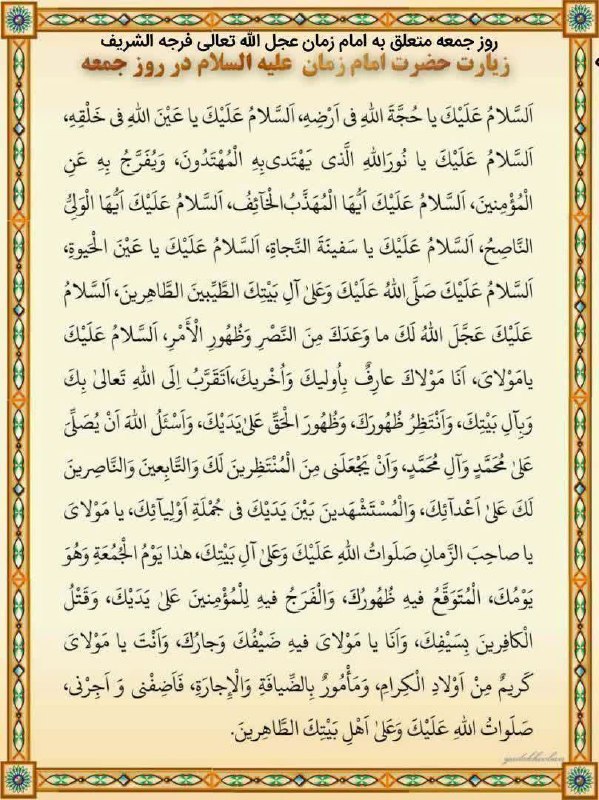 روز جمعه متعلق به امام زمان عجل الله تعالی فرجه الشریف
زیارت حضرت امام زمان علیه السلام در روز جمعه
اَلسَّلامُ عَلَيْكَ يا حُجَّةَ اللهِ فى اَرْضِهِ، اَلسَّلامُ عَلَيْكَ يا عَيْنَ اللهِ فى خَلْقِهِ،
اَلسَّلامُ عَلَيْكَ يا نُورَاللهِ الَّذى يَهْتَدى‌بِهِ الْمُهْتَدُونَ، وَيُفَرَّجُ بِهِ عَنِ
الْمُؤْمِنينَ، اَلسَّلامُ عَلَيْكَ اَيُّهَا الْمُهَذَّبُ‌الْخَآئِفُ، اَلسَّلامُ عَلَيْكَ اَيُّهَا الْوَلِىُّ
النَّاصِحُ، اَلسَّلامُ عَلَيْكَ يا سَفينَةَ النَّجاةِ، اَلسَّلامُ عَلَيْكَ يا عَيْنَ الْحَيوةِ،
اَلسَّلامُ عَلَيْكَ صَلَّى‌اللهُ عَلَيْكَ وَعَلىٰ آلِ بَيْتِكَ الطَّيِّبينَ الطَّاهِرينَ، اَلسَّلامُ
عَلَيْكَ عَجَّلَ اللهُ لَكَ ما وَعَدَكَ مِنَ النَّصْرِ وَظُهُورِ الْأَمْرِ، اَلسَّلامُ عَلَيْكَ
يامَوْلاىَ، اَنَا مَوْلاكَ عارِفٌ بِأُوليكَ وَاُخْريكَ،اَتَقَرَّبُ اِلَى اللهِ تَعالىٰ بِكَ
وَبِآلِ بَيْتِكَ، وَاَنْتَظِرُ ظُهُورَكَ، وَظُهُورَ الْحَقِّ عَلىٰ‌يَدَيْكَ، وَاَسْئَلُ اللهَ اَنْ يُصَلِّىَ
عَلىٰ مُحَمَّدٍ وَآلِ مُحَمَّدٍ، وَاَنْ يَجْعَلَنى مِنَ الْمُنْتَظِرينَ لَكَ وَالتَّابِعينَ وَالنَّاصِرينَ
لَكَ عَلىٰ اَعْدآئِكَ، وَالْمُسْتَشْهَدينَ بَيْنَ يَدَيْكَ فى جُمْلَةِ اَوْلِيآئِكَ، يا مَوْلاىَ
يا صاحِبَ الزَّمانِ صَلَواتُ اللهِ عَلَيْكَ وَعَلىٰ آلِ بَيْتِكَ، هٰذا يَوْمُ الْجُمُعَةِ وَهُوَ
يَوْمُكَ، الْمُتَوَقَّعُ فيهِ ظُهُورُكَ، وَالْفَرَجُ فيهِ لِلْمُؤْمِنينَ عَلىٰ يَدَيْكَ، وَقَتْلُ
الْكافِرينَ بِسَيْفِكَ، وَاَنَا يا مَوْلاىَ فيهِ ضَيْفُكَ وَجارُكَ، وَاَنْتَ يا مَوْلاىَ
كَريمٌ مِنْ اَوْلادِ الْكِرامِ، وَمَأْمُورٌ بِالضِّيافَةِ وَالْاِجارَةِ، فَاَضِفْنى وَ اَجِرْنى،
صَلَواتُ اللهِ عَلَيْكَ وَعَلىٰ اَهْلِ بَيْتِكَ الطَّاهِرينَ.